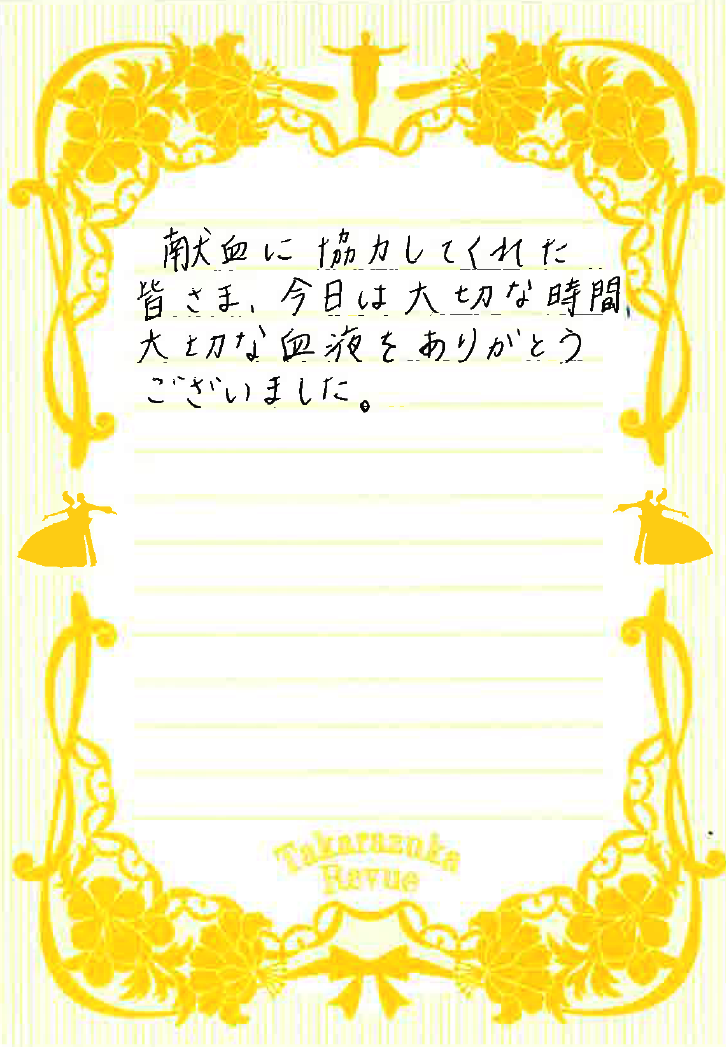 献血に協力してくれた
皆さま、今日は大切な時間、
大切な血液をありがとう
ございました。
Takarazuka
Revue